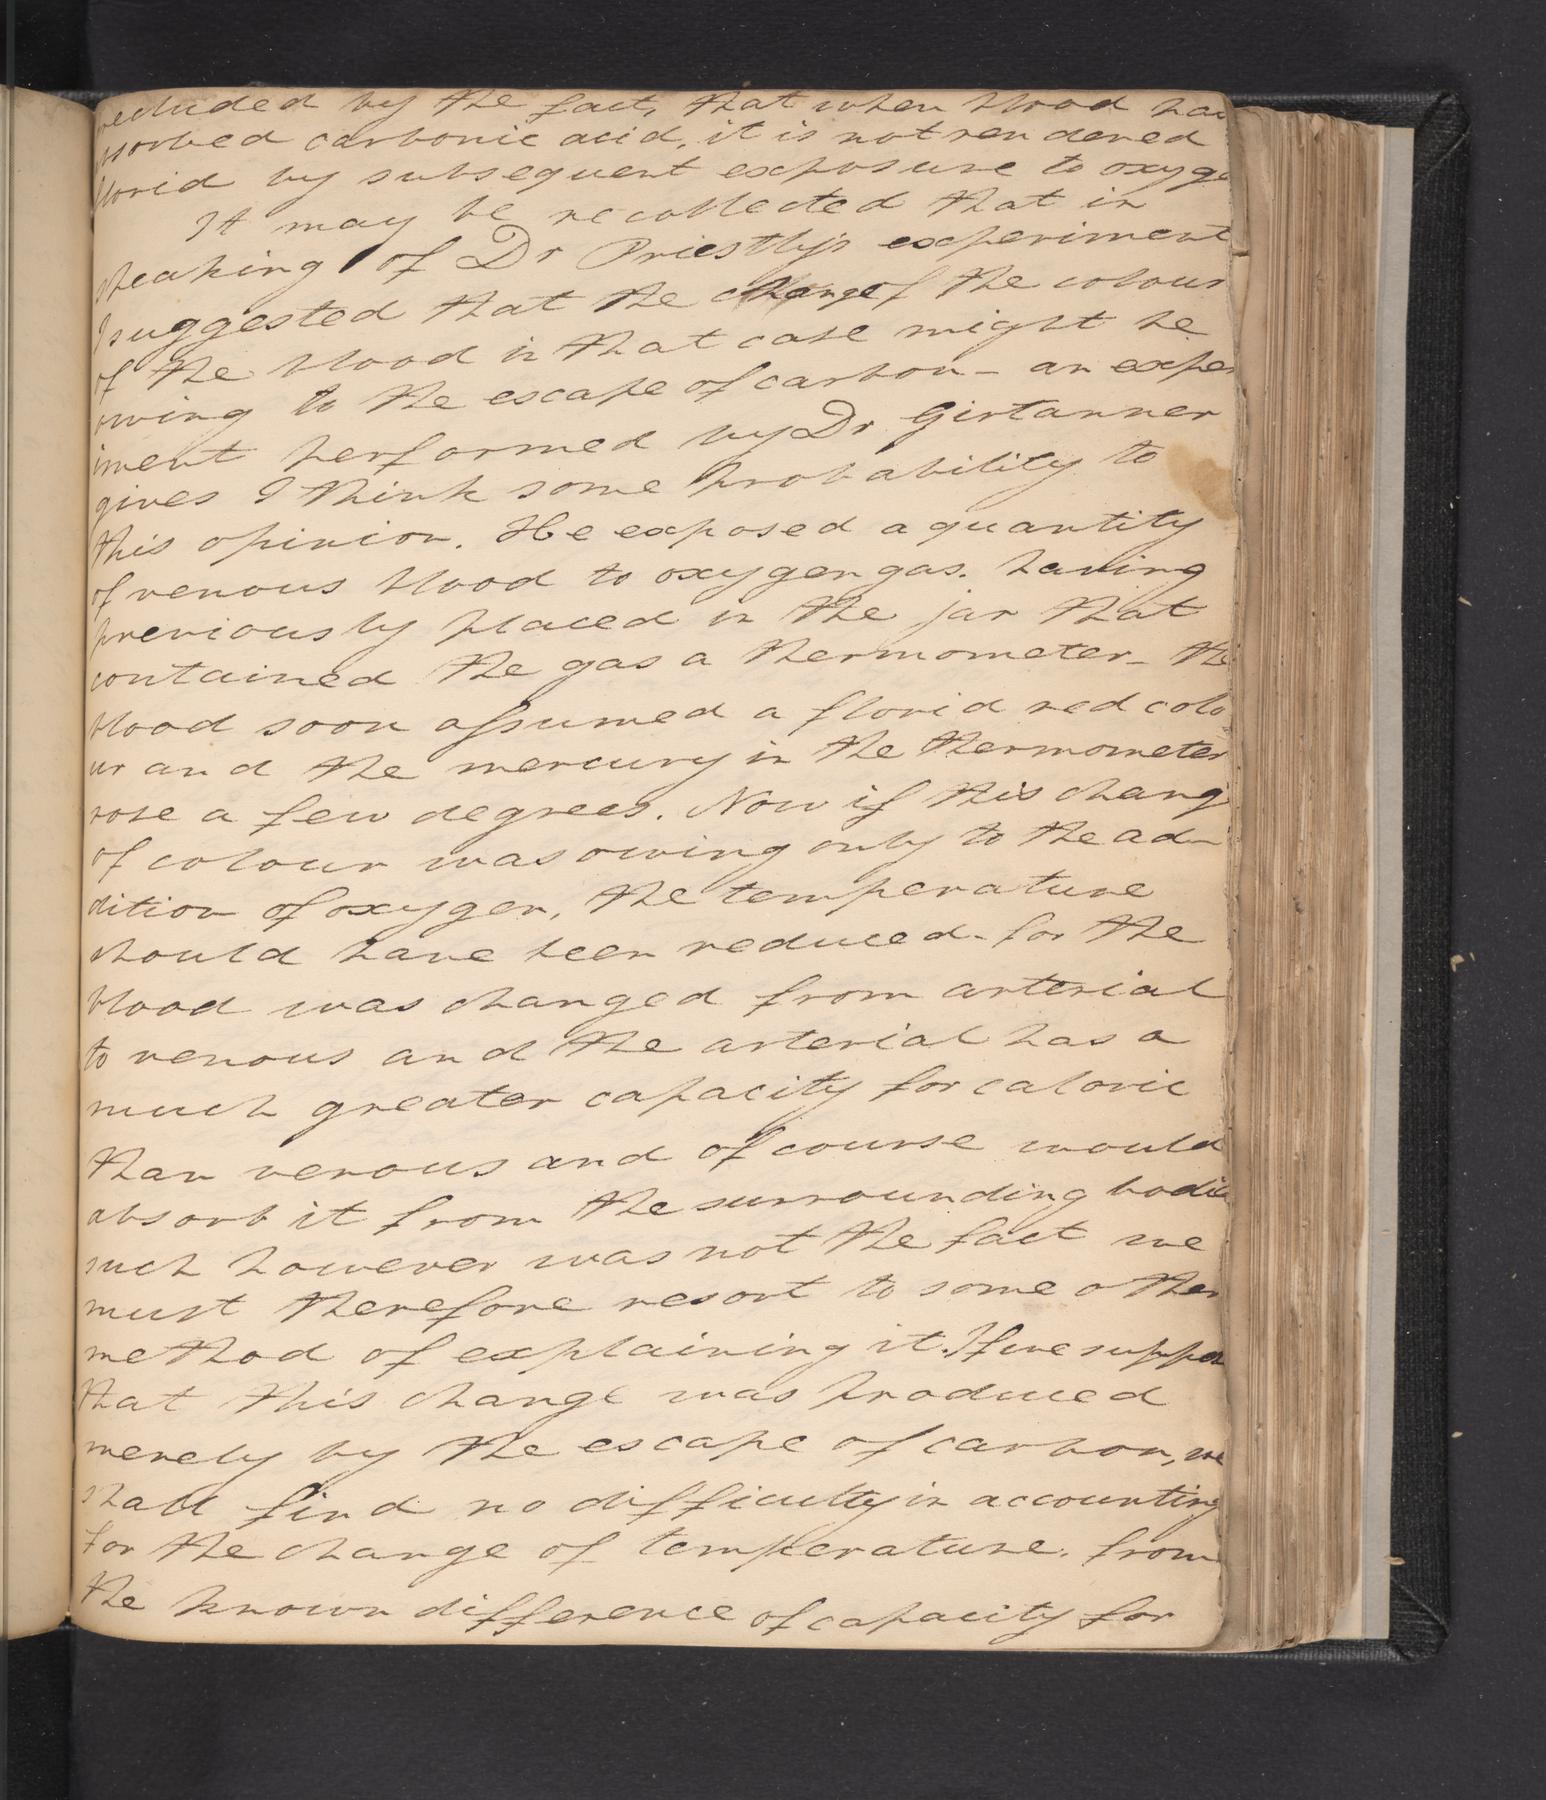 precluded by the fact, that when blood has
absorbed carbonic acid, it is not rendered
florid by subsequent exposure to oxyge
It may be recollected that in
speaking of Dr Priestly's experiment
I suggested that the change of the colour
of the blood in that case might be
owing to the escape of carbon - an exper
iment performed by Dr Girtanner
gives I think some probability to
this opinion. He exposed a quantity
of venous blood to oxygen gas. having
previously placed in the jar that
contained the gas a thermometer - the
blood soon assumed a florid red colo
ur and the mercury in the thermometer
rose a few degrees. Now if this chang
of colour was owing only to the ad-
dition of oxygen, the temperature
should have been reduced - for the
blood was changed from arterial
to venous and the arterial has a
much greater capacity for caloric
than venous and of course would
absorb it from the surrounding bodies
such however was not the fact we
must therefore resort to some other
method of explaining it. If we suppose
that this change was produced
merely by the escape of carbon, we
shall find no difficulty in accounting
for the change of temperature. from
the known difference of capacity for